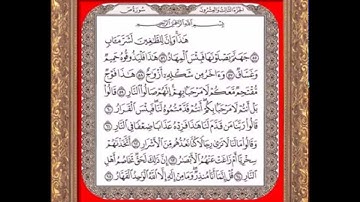 الجزء الثالث والعشرون سورة ص
بسم الله الرحمن الرحيم
هذا وإن للطغين لشر مئاب
جهنم يصلونها فبئس المهاد هذا فليذوقوه حميم
وغساق وءاخر من شكله أزوج هذا فوج
مقتحم معكم لا مرحبا بهم إنهم صالوا النار قالوا
بل أنتم لا مرحبا بكم أنتم قدمتموه لنا فبئس القرار
قالوا ربنا من قدم لنا هذا فزده عذابا ضعفا في النار
وقالوا ما لنا لا نرى رجالا كنا نعدهم من الأشرار أتخذنهم
سخريا أم زاغت عنهم الأبصر إن ذلك لحق تخاصم أهل
النار قل إنما أنا منذر وما من إله إلا الله الوحد القهار